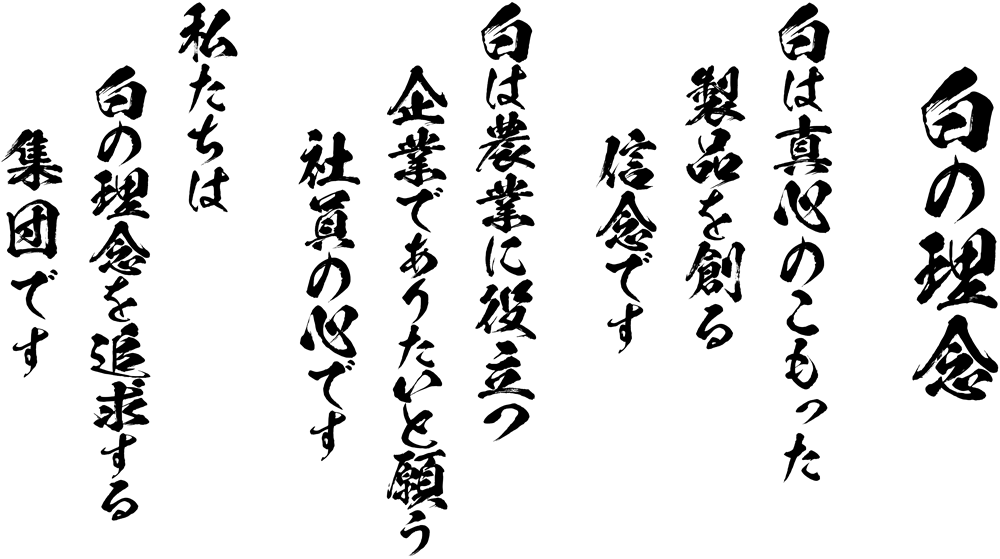 白の理念
白は真心のこもった
製品を創る
信念です
白は農業に役立つ
企業でありたいと願う
社員の心です
私たちは
白の理念を追求する
集団です